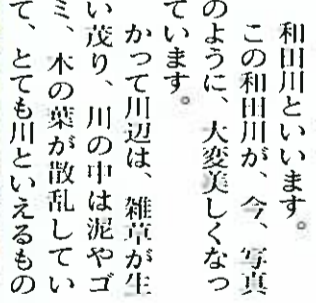 和田川といいます。
この和田川が、今、写真
のように、大変美しくなっ
ています。
かって川辺は、雑草が生
い茂り、川の中は泥やゴ
ミ、木の葉が散乱してい
て、とても川といえるもの